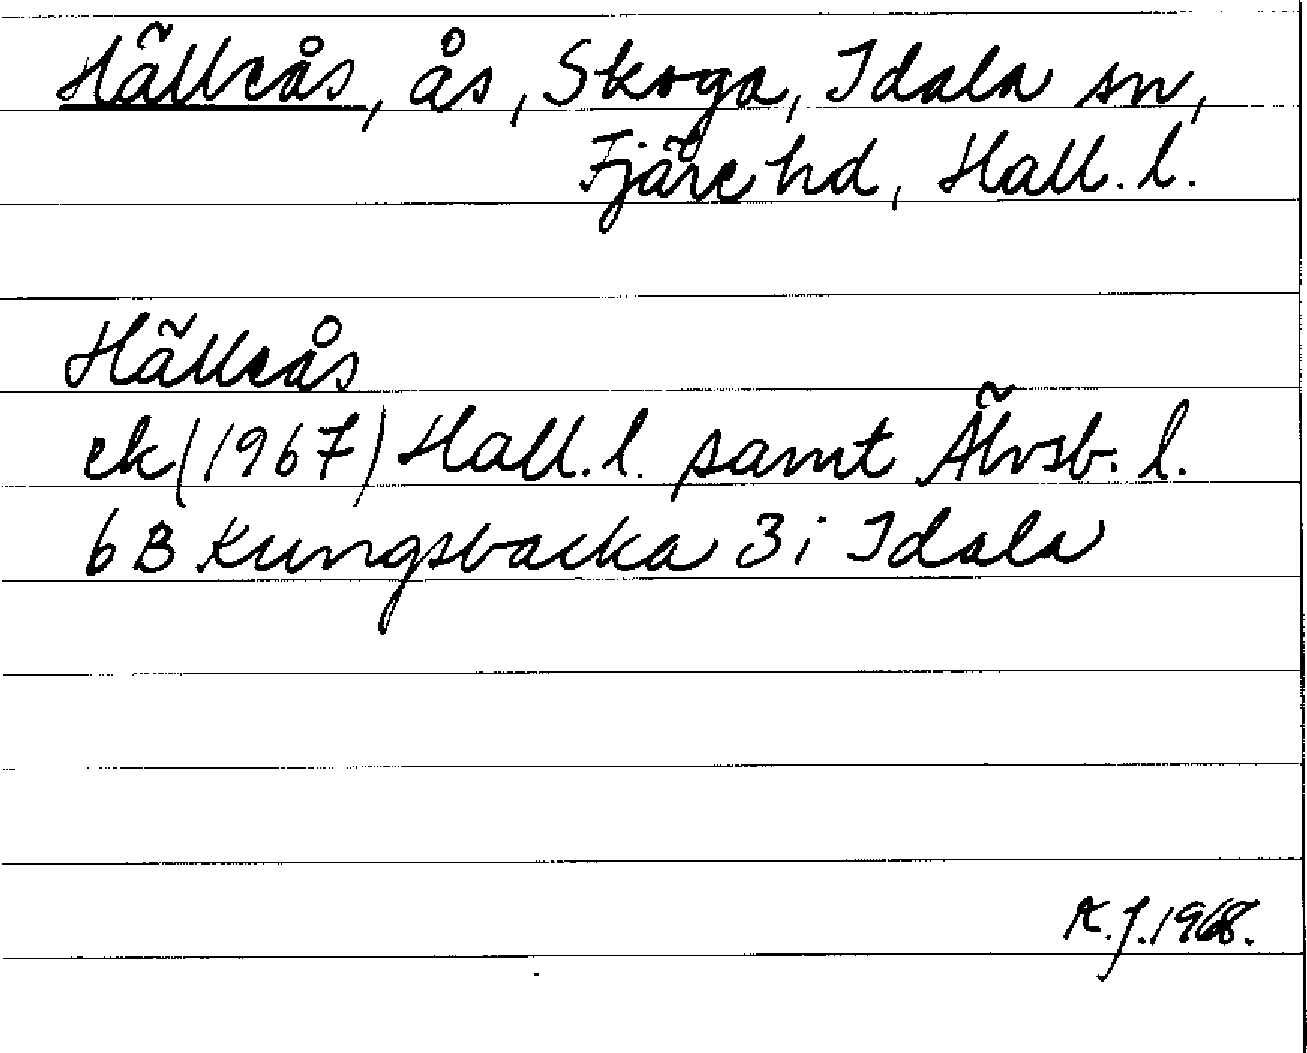 Hälleås, ås, Skoga, Idala sn,
Fjäre hd, Hall. l.
Hälleås
ek (1967) Hall. l. samt Älvsb. l.
6 B Kungsbacka 3 i Idala
K. J. 1968.